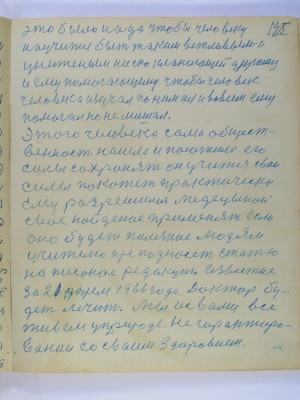 это было надо чтобы человеку
научится быть таким вежливым и
ценженым нископлающей другому
и ему помогающему чтобы человек
человека изучал понимал и вовсем ему
помогал но не мешал.
Этого человека сама общест-
венность нашла и положив его
силы сохранят он учится свои
силы покажет практически
ему разрешила медецыной
свое найденое применят если
оно будет полезное людям
учителю преподносет статю
на тисное редакция известие
за 21 апреля 1966 года. Доктор бу-
дет лечит. Мы с вами все
живем у природе не гарантиро-
ваны со своим здоровием.